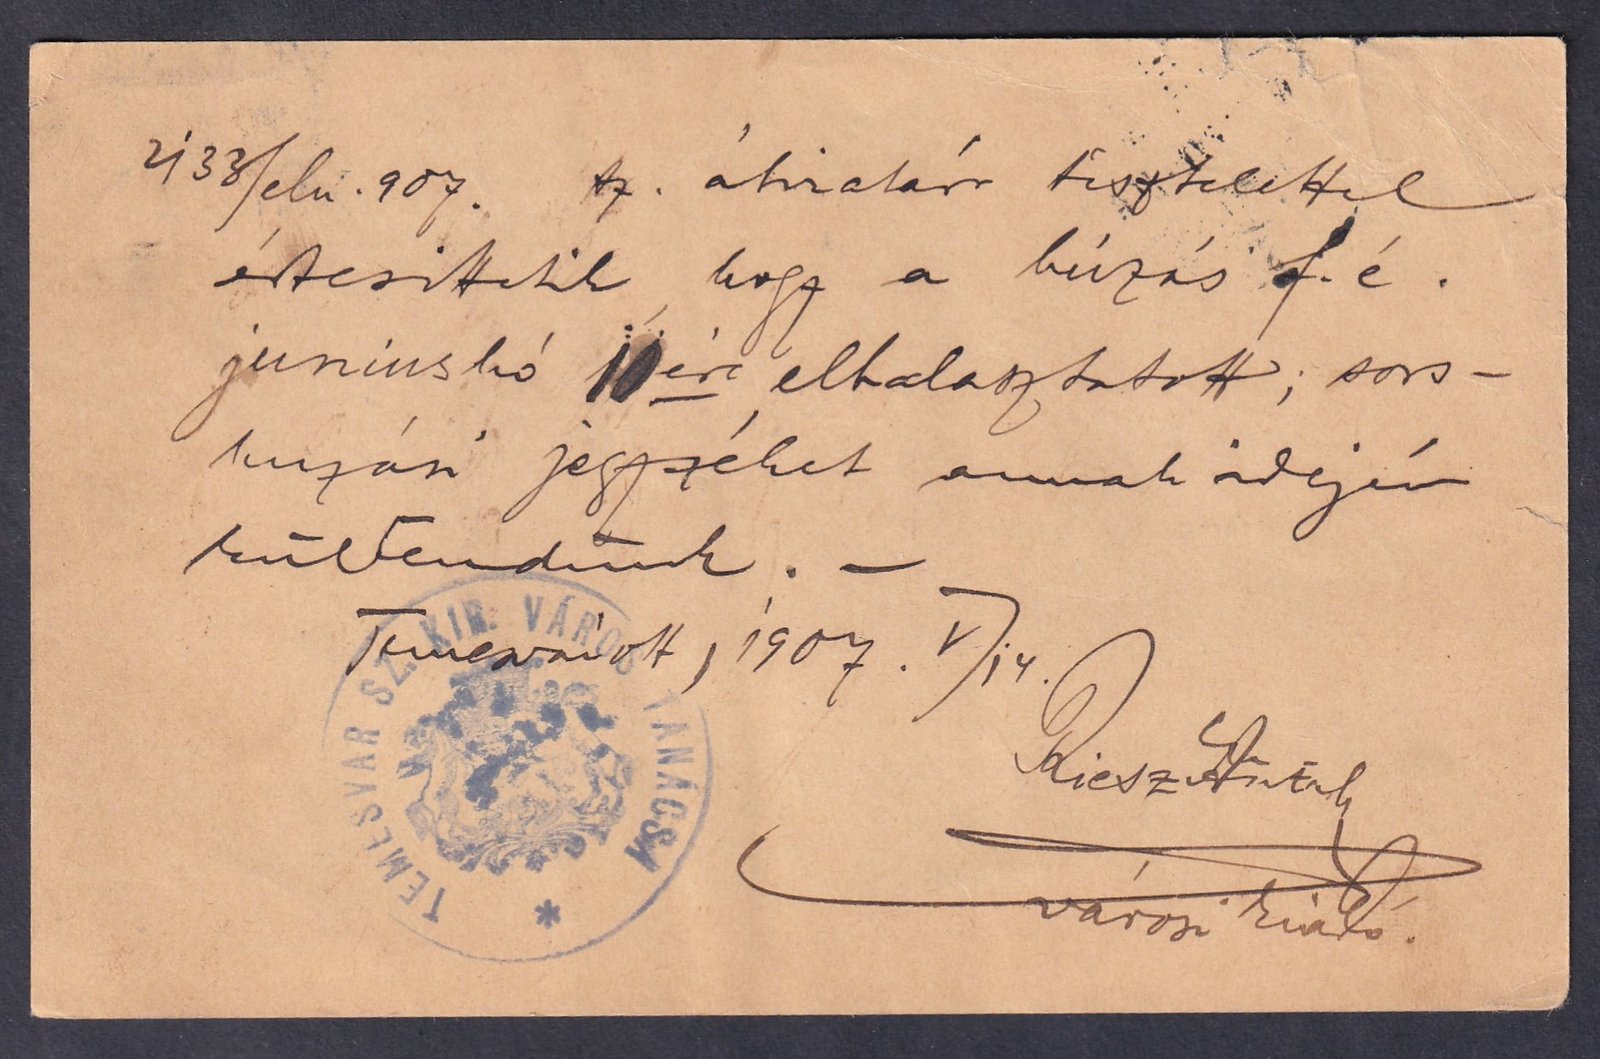 2133/eln. 907. sz. átiratára tisztelettel
értesittetik, hogy a húzás f. é.
juniushó 10 ére elhalasztatott; sors-
huzási jegyzéket annak idején
küldendünk. –
Temesvárott, 1907. V/14.
Riesz
városi kiadó.
TEMESVÁR SZ. KIR. VÁROS TANÁCSA